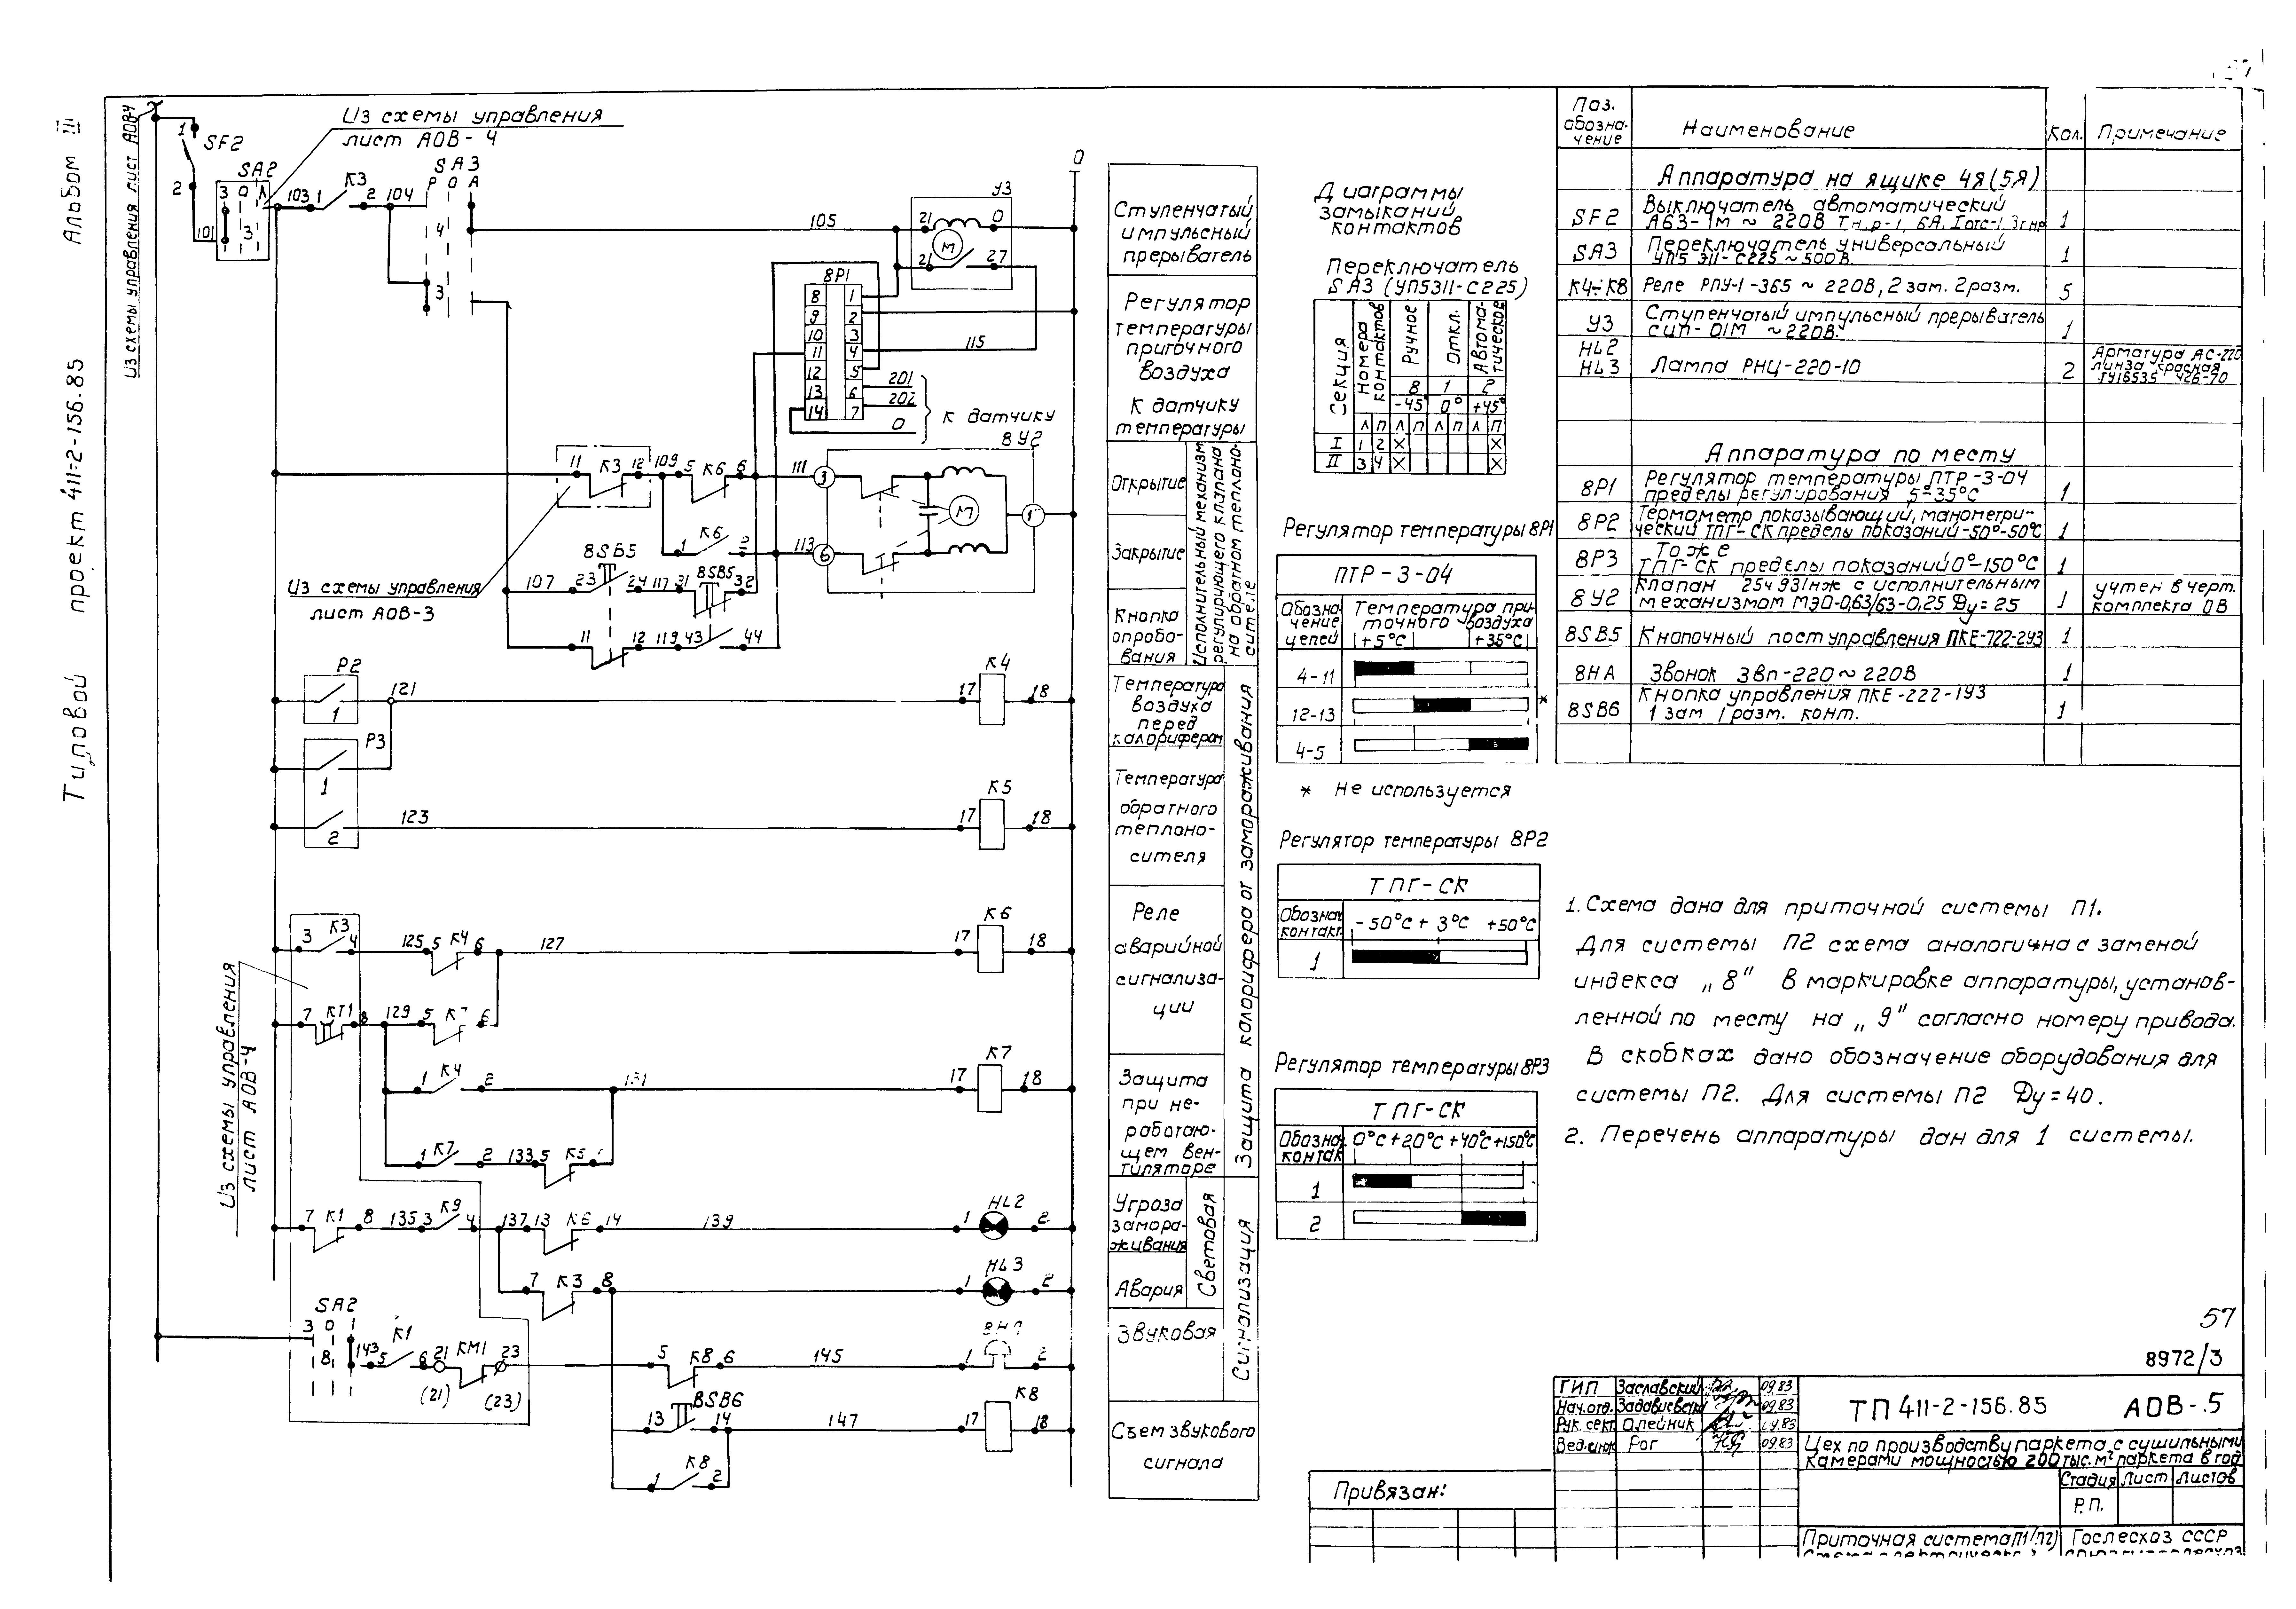 Альбом III
Типовой проект 411-2-156.85
Из схемы управления лист АОВ-4
Из схемы управления
лист АОВ-4
1
SF2
2
SA2
3 0 Л
3
101
103 1 К3 2 104
SA3
Р О А
4
3
105
У3
21 0
М
21 27
0
8Р1
8 1
9 2
10 3
11 4
12 5
13 6
14 7
115
201
202
0
К датчику
8У2
11 К3 12 109 5 К6 6 111 3
М
1
1 К6 2 113 6
Из схемы управления
лист АОВ-3
8SB5
107 23 24 117 31 8SB5 32
11 12 119 43 44
Р2
1
121
17 К4 18
Р3
1
2
123
17 К5 18
Из схемы управления
лист АОВ-4
3 К3 4 125 5 К4 6 127 17 К6 18
7 КТ1 8 129 5 6
1 К4 2 131 17 К7 18
1 К7 2 133 5 К5
7 К1 8 135 3 К9 4 137 13 К6 14 139 1 HL2 2
7 К3 8 1 HL3 2
SA2
3 0 1
8
143 5 К1 6 21 КМ1 23
(21) (23)
5 К8 6 145 1 2
8SB6
13 14 147 17 К8 18
1 К8 2
Ступенчатый
импульсный
прерыватель
Регулятор
температуры
приточного
воздуха
К датчику
температуры
Открытие
Закрытие
Кнопка
опробо-
вания
Исполнительный механизм
регулирующего клапана
на обратном теплоно-
сителе
Температура
воздуха
перед
калорифером
Температура
обратного
теплоно-
сителя
Реле
аварийной
сигнализа-
ции
Защита
при не-
работаю-
щем вен-
тиляторе
Защита калорифера от замораживания
Угроза
замора-
живания
Авария
Световая
Звуковая
Сигнализация
Съем звукового
сигнала
Диаграммы
замыканий
контактов
Переключатель
SA3 (УП5311-С225)
Секция
Номера контактов
Ручное
Откл.
Автома-
тическое
8 1 2
-45° 0° +45°
Л П Л П Л П
I 1 2 X X
II 3 4 X X
Регулятор температуры 8Р1
ПТР-3-04
Обозна-
чение
цепей
Температура при-
точного воздуха
+5°С +35°С
4-11
12-13 *
4-5
* Не используется
Регулятор температуры 8Р2
ТПГ-СК
Обознач.
контакт.
-50°С +3°С +50°С
1
Регулятор температуры 8Р3
ТПГ-СК
Обознач.
контак
0°С +20°С +40°С +150°С
1
2
Поз.
обозна-
чение
Наименование
Кол.
Примечание
Аппаратура на ящике 4Я(5Я)
SF2 Выключатель автоматический
А63-1М ~ 220В Тн.р-1,6А, Iотс-1,3Iнр 1
SA3 Переключатель универсальный
УП5311-С225 ~500В. 1
К4÷К8 Реле РПУ-1-365 ~ 220В, 2 зам. 2 разм. 5
У3 Ступенчатый импульсный прерыватель
СИП-01М ~220В. 1
HL2
HL3 Лампа РНЦ-220-10 2
Арматура АС-220
линза красная
ТУ16535 426-70
Аппаратура по месту
8Р1 Регулятор температуры ПТР-3-04
пределы регулирования 5°-35°С 1
8Р2 Термометр показывающий, манометри-
ческий ТПГ-СК пределы показаний -50°-50°С 1
8Р3 То же
ТПГ-СК пределы показаний 0°-150°С 1
8У2 Клапан 25ч931нж с исполнительным
механизмом МЭО-0,63/63-0,25 Ду=25 1
учтен в черт.
комплекта ОВ
8SB5 Кнопочный пост управления ПКЕ-722-2У3 1
8НА Звонок ЗВП-220 ~ 220В 1
8SB6 Кнопка управления ПКЕ-222-1У3
1 зам 1 разм. конт. 1
1. Схема дана для приточной системы П1.
Для системы П2 схема аналогична с заменой
индекса „8" в маркировке аппаратуры, установ-
ленной по месту на „9" согласно номеру привода.
В скобках дано обозначение оборудования для
системы П2. Для системы П2 Ду=40.
2. Перечень аппаратуры дан для 1 системы.
57
8972/3
ГИП Заславский 09.83
Нач.отд. 09.83
Рук.сект. Олейник 09.83
Вед.инж Рог 09.83
ТП 411-2-156.85 АОВ-5
Цех по производству паркета с сушильными
камерами мощностью 200 тыс. м² паркета в год
Стадия Лист Листов
Р.П.
Приточная система П1(П2)
Гослесхоз СССР
Привязан: